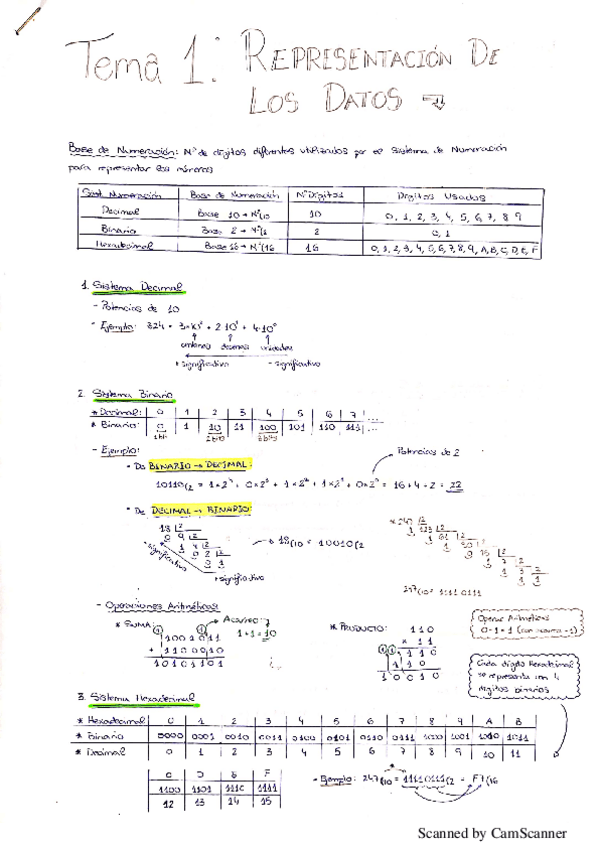 Tema 1: REPRESENTACIÓN DE
LOS DATOS
Base de Numeración: Nº de dígitos diferentes utilizados por el Sistema de Numeración
para representar los números
Sist. Numeración Base de Numeración Nº Dígitos Dígitos Usados
Decimal Base 10 → Nº(10 10 0, 1, 2, 3, 4, 5, 6, 7, 8 9
Binario Base 2 → Nº(2 2 0, 1
Hexadecimal Base 16 → Nº(16 16 0, 1, 2, 3, 4, 5, 6, 7, 8, 9, A, B, C, D, E, F
1. Sistema Decimal
- Potencias de 10
- Ejemplo: 324 = 3·10² + 2·10¹ + 4·10⁰
centenas decenas unidades
+ significativo - significativo
2. Sistema Binario
* Decimal: 0 1 2 3 4 5 6 7 ...
* Binario: 0 1 10 11 100 101 110 111 ...
- Ejemplo: Potencias de 2
• De BINARIO → DECIMAL:
10110(2 = 1×2⁴ + 0×2³ + 1×2² + 1×2¹ + 0×2⁰ = 16 + 4 + 2 = 22
• De DECIMAL → BINARIO:
→ 18(10 = 10010(2
+ significativo
247(10 = 11110111
- Operaciones Aritméticas
* SUMA: Acarreo:
1+1=10
1001011
+ 1100010
10101101
* PRODUCTO: 110
× 11
110
110
10010
Cada dígito Hexadecimal
se representa con 4
dígitos binarios
3. Sistema Hexadecimal
* Hexadecimal 0 1 2 3 4 5 6 7 8 9 A B
* Binario 0000 0001 0010 0011 0100 0101 0110 0111 1000 1001 1010 1011
* Decimal 0 1 2 3 4 5 6 7 8 9 10 11
C D E F
1100 1101 1110 1111
12 13 14 15
- Ejemplo: 247(10 = 11110111(2 = F7(16
Scanned by CamScanner